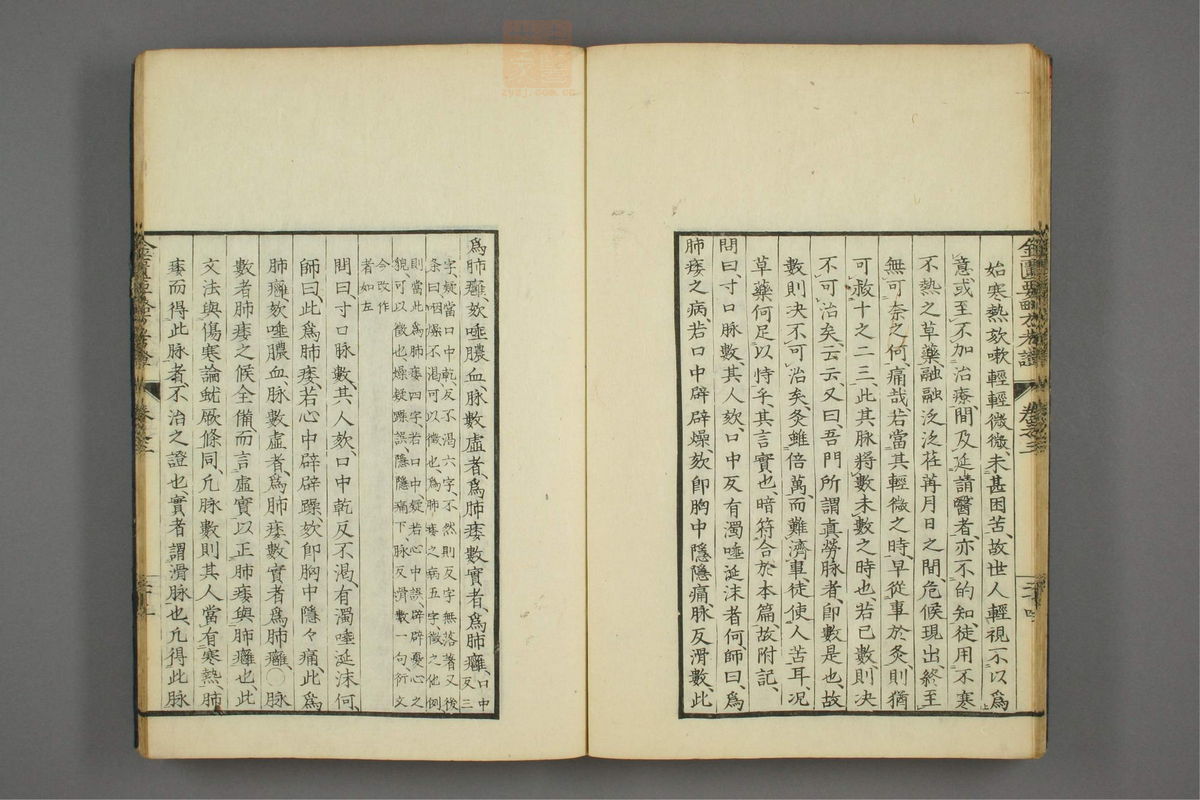 始寒熱欬嗽輕輕微微、未甚困苦、故世人輕視不以爲
意或至不加治療、間及延請醫者、亦不的知、徒用不寒
不熱之草藥、融融泛泛荏苒月日之間危候現出、終至
無可奈之何、痛哉若當其輕微之時、早從事於灸、則猶
可救十之二三、此其脉將數未數之時也、若已數、則决
不可治矣、云云、又曰、吾門所謂眞勞脉者、卽數是也、故
數則决不可治矣、灸雖倍萬、而難濟事、徒使人苦耳、况
草藥何足以恃乎、其言實也、暗符合於本篇、故附記、
問曰、寸口脉數、其人欬、口中反有濁唾涎沫者何、師曰、爲
肺痿之病、若口中辟辟燥、欬卽胸中隱隱痛、脉反滑數、此
爲肺癰、欬唾膿血、脉數虛者、爲肺痿、數實者、爲肺癰、口中反三
字、疑當口中乾、反不渴六字、不然則反字無落著、又後
条曰、咽燥不渴可以徵也、爲肺痿之病五字、徵之他例
則當此爲肺痿四字、若口中疑若心中誤、辟辟憂心之
貌、可以徵也、燥疑躁誤、隱隱痛下、脉反滑數一句、衍文
今改作
者如左
問曰、寸口脉數、其人欬、口中乾反不渴、有濁唾涎沫何、
師曰、此爲肺痿、若心中辟辟躁、欬卽胸中隱々痛、此爲
肺癰、欬唾膿血、脉數虛者、爲肺痿、數實者爲肺癰、〇脉
數者肺痿之候全備、而言虛實以正肺痿與肺癰也、此
文法與傷寒論蚘厥條同、凡脉數則其人當有寒熱、肺
痿而得此脉者、不治之證也、實者謂滑脉也、凡得此脉